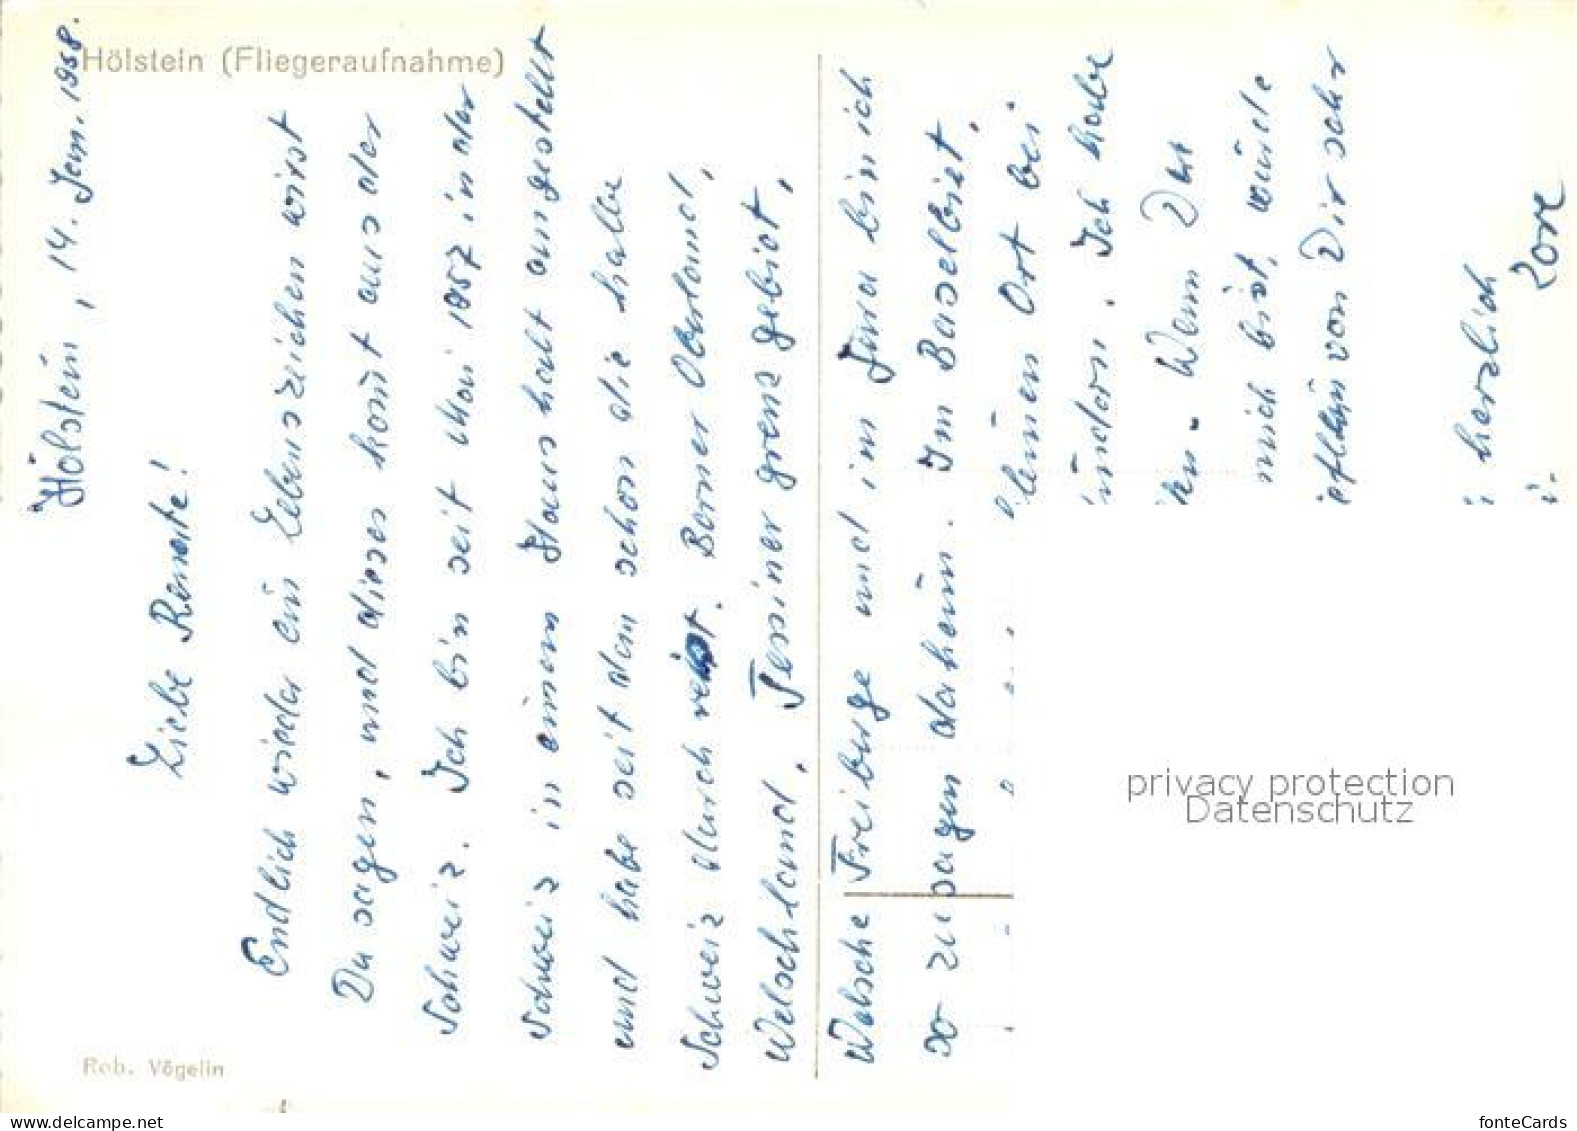 Hölstein (Fliegeraufnahme)
Hölstein, 14. Jem. 1958.
Liebe Renate!
Endlich wieder ein Lebenszeichen wirst
Du sagen, und dieses komt aus der
Schweiz. Ich bin seit Mai 1957 in der
Schweiz in einem Haushalt angestellt
und habe seit dem schon die halbe
Schweiz durch reist. Berner Oberland,
Welschland, Tessiner grenz gebiet,
Welsche Freiburge und im Jura bin ich
so zu sagen daheim. Im Baselbiet.
Ort bei
ndern. Ich habe
ten. Wenn Du
mich bist, würde
von Dir sehr
herzlich
Lore
Rob. Vögelin
privacy protection
Datenschutz
www.delcampe.net
fonteCards